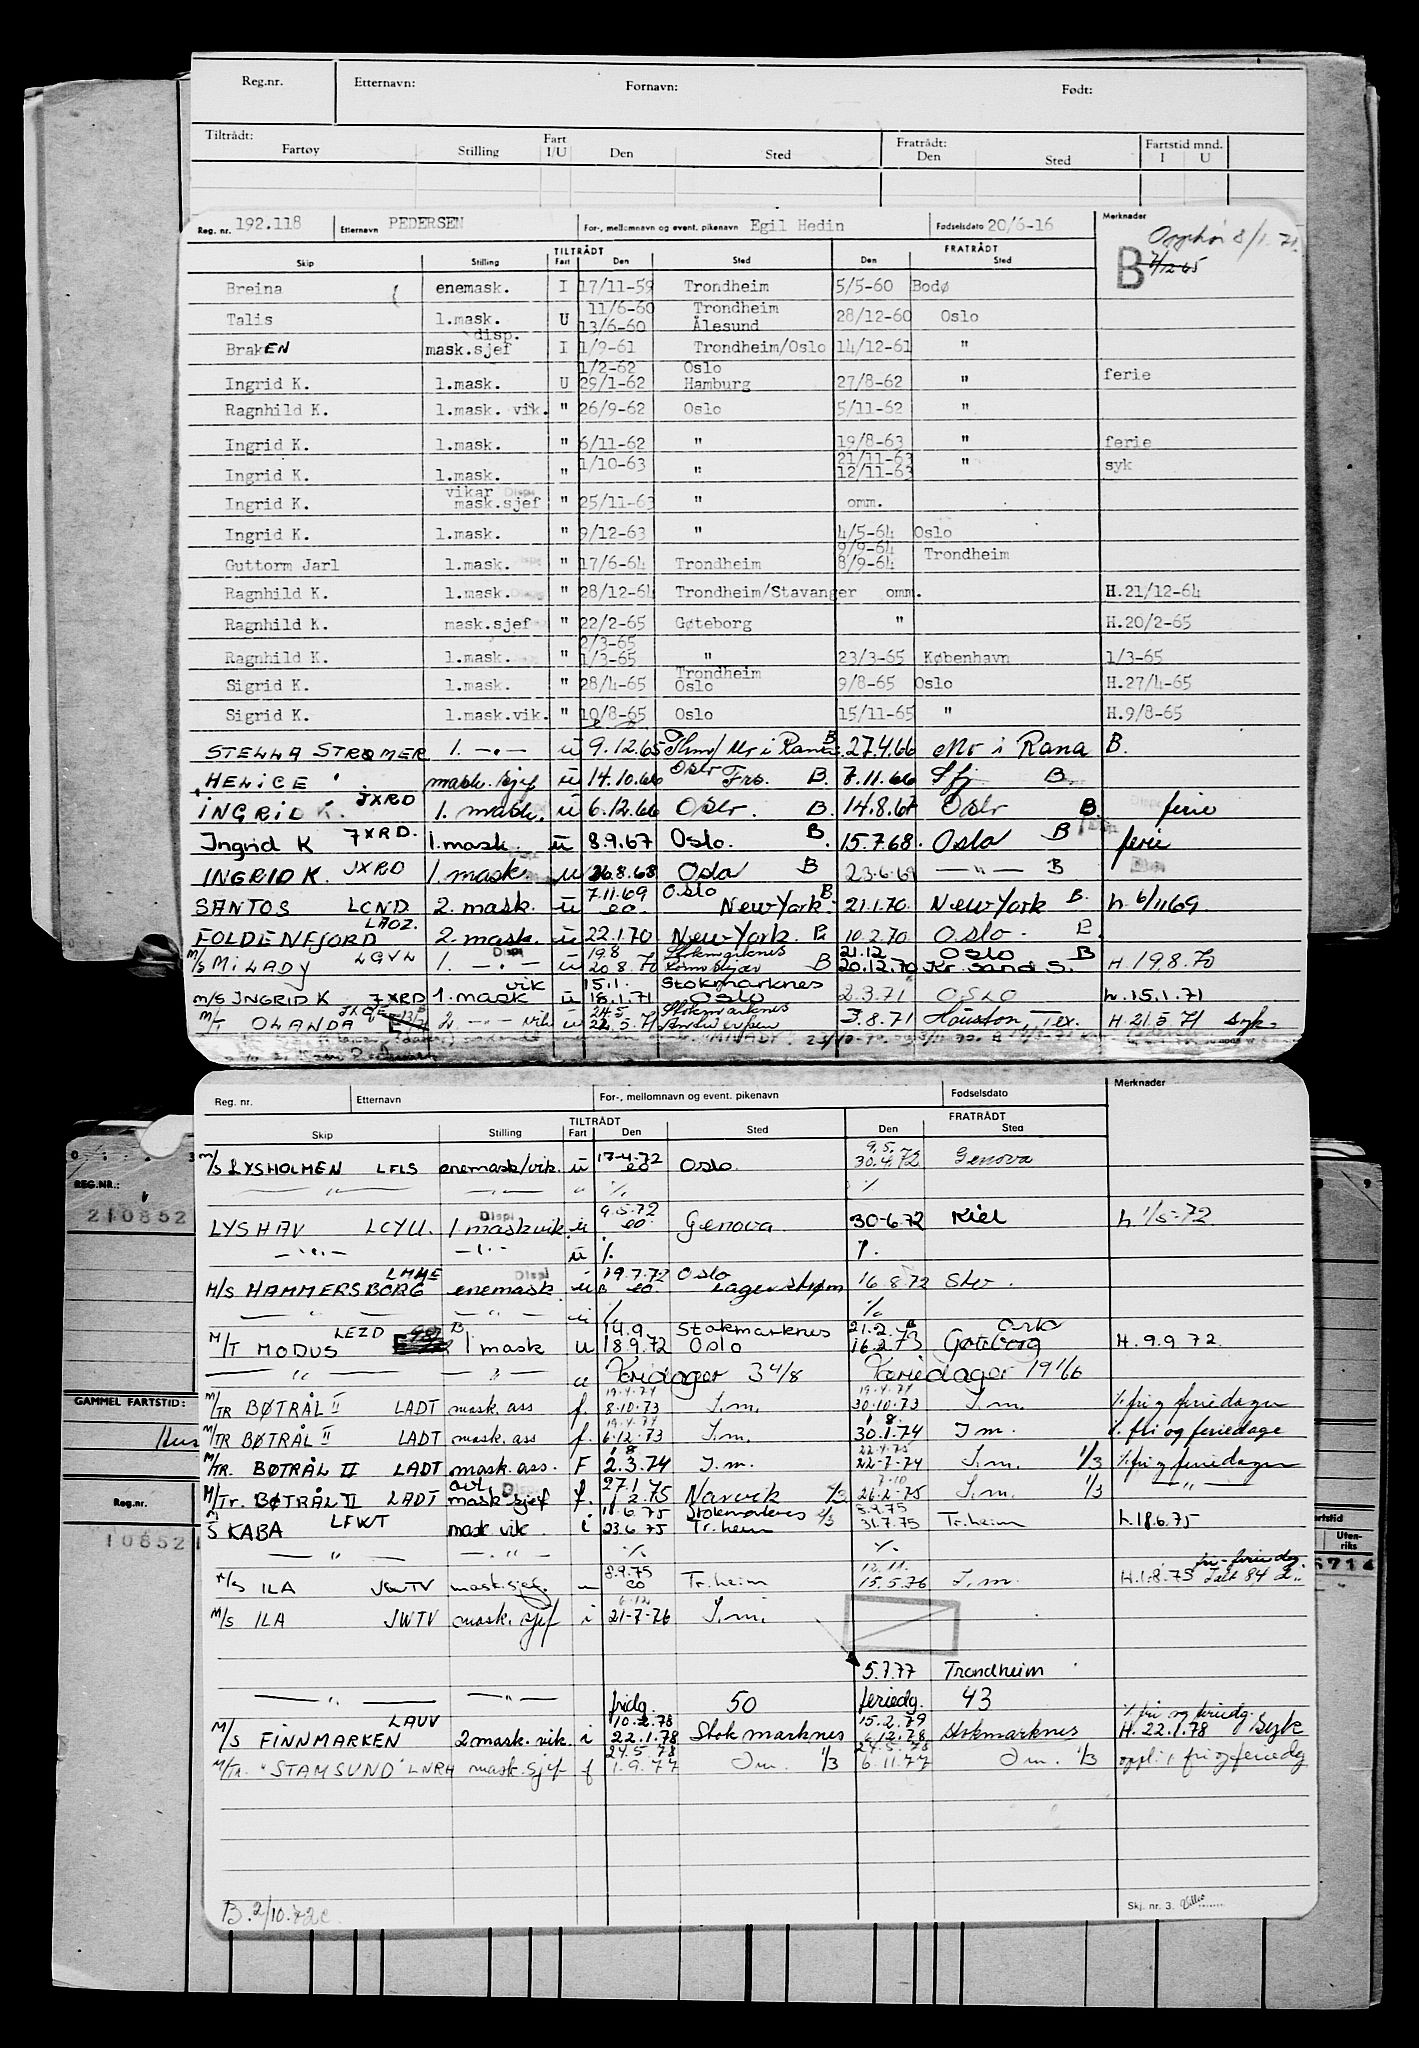 Reg.nr. Etternavn: Fornavn: Født:
Tiltrådt: Fart Fratrådt: Fartstid mnd.
Fartøy Stilling I/U Den Sted Den Sted I U
Reg. nr. 192.118 Etternavn PEDERSEN For-, mellomnavn og event. pikenavn Egil Hedin Fødselsdato 20/6-16 Merknader
Opphør 8/1.71.
B 7/12-65
TILTRÅDT FRATRÅDT
Skip Stilling Fart Den Sted Den Sted
Breina enemask. I 17/11-59 Trondheim 5/5-60 Bodø
11/6-60 Trondheim
Talis 1.mask. U 13/6-60 Ålesund 28/12-60 Oslo
disp.
BrakEN mask.sjef I 1/9-61 Trondheim/Oslo 14/12-61 "
1/2-62 Oslo
Ingrid K. 1.mask. U 29/1-62 Hamburg 27/8-62 " ferie
Ragnhild K. 1.mask. vik. " 26/9-62 Oslo 5/11-62 "
Ingrid K. 1.mask. " 6/11-62 " 19/8-63 " ferie
1/10-63 21/11-63
Ingrid K. 1.mask. " " 12/11-63 " syk
vikar Disp
Ingrid K. mask.sjef " 25/11-63 " omm.
Ingrid K. 1.mask. " 9/12-63 " 4/5-64 Oslo
9/9-64
Guttorm Jarl 1.mask. " 17/6-64 Trondheim 8/9-64 Trondheim
Ragnhild K. 1.mask. " 28/12-64 Trondheim/Stavanger omm. H.21/12-64
Ragnhild K. mask.sjef " 22/2-65 Gøteborg " H.20/2-65
2/3-65
Ragnhild K. 1.mask. " 1/3-65 " 23/3-65 København 1/3-65
Trondheim
Sigrid K. 1.mask. " 28/4-65 Oslo 9/8-65 Oslo H.27/4-65
Sigrid K. 1.mask.vik. " 10/8-65 Oslo 15/11-65 " H.9/8-65
STELLA STRØMER 1. -"- u 9.12.65 Thm/Mo i Rana B. 27.4.66 Mo i Rana B.
HELICE mask.sjef u 14.10.66 Oslo Fro. B. 7.11.66 Sfj B.
INGRID K. JXRD 1. mask. u 6.12.66 Oslo. B. 14.8.67 Oslo B. ferie
Ingrid K JXRD. 1.mask. u 8.9.67 Oslo. B. 15.7.68. Oslo B ferie
INGRID K. JXRD 1. mask. u 26.8.68 Oslo B 23.6.69 -"- B
7.11.69 Oslo
SANTOS LCND 2. mask. u eo. New York. B 21.1.70 New York B. h. 6/1169
FOLDENFJORD LAOZ. 2. mask. u 22.1.70 New York. B 10.2.70 Oslo. B.
19.8 Stokmarknes 21.12 Oslo B
M/S MILADY LGVL 1. -"- u 20.8.70 B 20.12.70 Kr. Sand S. H 19.8.70
vik 15.1. Stokmarknes
M/S INGRID K JXRD 1. mask u 18.1.71 OSLO 2.3.71 OSLO h.15.1.71
24.5 Stokmarknes
M/T OLANDA 2 -"- vik u 22.5.71 Antwerpen 3.8.71 Houston Tex. H 21.5 71 syk.
Reg. nr. Etternavn For-, mellomnavn og event. pikenavn Fødselsdato Merknader
TILTRÅDT FRATRÅDT
Skip Stilling Fart Den Sted Den Sted
9.5.72
M/S LYSHOLMEN LFLS enemask/vik. u 17.4.72 eo Oslo. 30.4.72 Genova
-"- -"- " % %
LYSHAV LCYU. Disp 1 maskvik. u 9.5.72 eo Genova 30-6.72 Kiel h 1/5-72
-"- -"- u %. %.
M/S HAMMERSBORG LMME enemask u 19.7.72 eo Oslo 16.8.72 Sto.
-"- -"- u % %
14.9. Stokmarknes 21.2.
M/T MODUS LEZD 1 mask u 18.9.72 Oslo 16.2.73 Gøteborg H. 9.9 72
-"- -"- u Feriedager 34/8 Feriedager 191/6
19.4.74 19.4.74
M/TR BØTRÅL II LADT mask. ass f. 8.10.73 I.m. 30.10.73 I.m. % fri og feriedager
19.4.74 1 8.
M/TR BØTRÅL II LADT mask. ass f. 6.12.73 I.m. 30.1.74 I m. % fri og feriedage
1 8 22.4.75
M/TR. BØTRÅL II LADT mask. ass. F 2.3.74 I.m. 22-7-74 I.m. 1/3 % fri og feriedager
27.1 7.10
M/Tr. BØTRÅL II LADT mask sjef f. 1 2.75 Narvik 1/3 26.2-75 I.m. 1/3 -"-
18.6.75 Stokmarknes 1/3 8.9.75
M/S KABA LFWT mask vik. i 23.6 75 Tr.heim 31.7.75 Tr.heim h.18.6.75
-"- -"- % %
8.9.75 12.11. fri-feriedg.
M/S ILA JWTV mask.sjef. eo Tr.heim 15.5.76 I.m. H.1.8.75 Ialt 84 d..
6.12
M/S ILA JWTV mask. sjef i 21-7-76 I.m.
5.1.77 Trondheim
-"- -"- fridg. 50 feriedg. 43
10.2.78 15.2.79 % fri og feriedg.
M/S FINNMARKEN LAUV 2 mask. vik. i 22.1.78 Stokmarknes 6.12.78 Stokmarknes H. 22.1.78 Syk
24.5.78 24.5.78
M/Tr. "STAMSUND" LNRH mask.sjef f 1.9.77 I m. 1/3 6.11.77 I m. 1/3 fri og feriedg
B. 2/10.72
Skj. nr. 3.
REG.NR.:
210852
GAMMEL FARTSTID:
Reg.nr.
10852
Uten-riks
5714